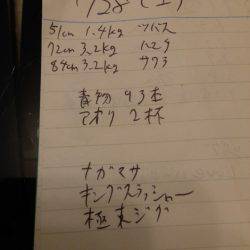 7/28 (土)
51cm 1.4kg ツバス
72cm 3.2kg ハマチ
84cm 3.2kg サワラ
青物 43本
アオリ 2杯
ナガマサ
キングスラッシャー
極東ジグ